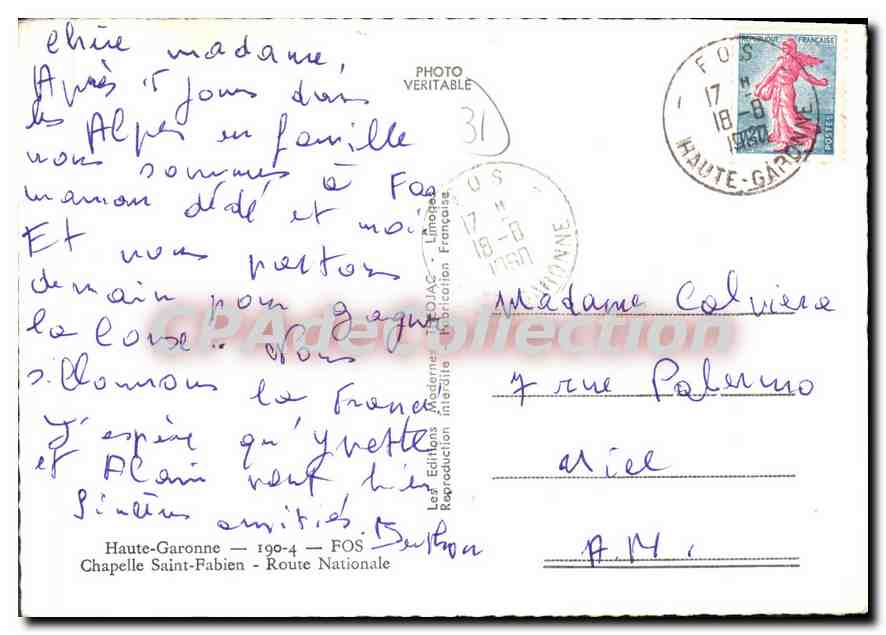 chère madame,
Après 15 jours dans
les Alpes en famille
nous sommes à Fos
maman dédé et moi
Et nous partons
demain pour gagner
la Corse. Nous
sillonnons la France
J'espère qu'Yvette
et Alain vont bien
Sincères amitiés.
Haute-Garonne — 190-4 — FOS
Chapelle Saint-Fabien - Route Nationale
PHOTO
VERITABLE
31
Les Editions Modernes - Limoges
Reproduction interdite - Fabrication Française
REPUBLIQUE FRANÇAISE
POSTES
FOS
17 H
18-8
1960
HAUTE-GARONNE
FOS
17 H
18-8
1960
RONNE
Madame Calviera
7 rue Palermo
Nice
A.M.
CPAdeCollection